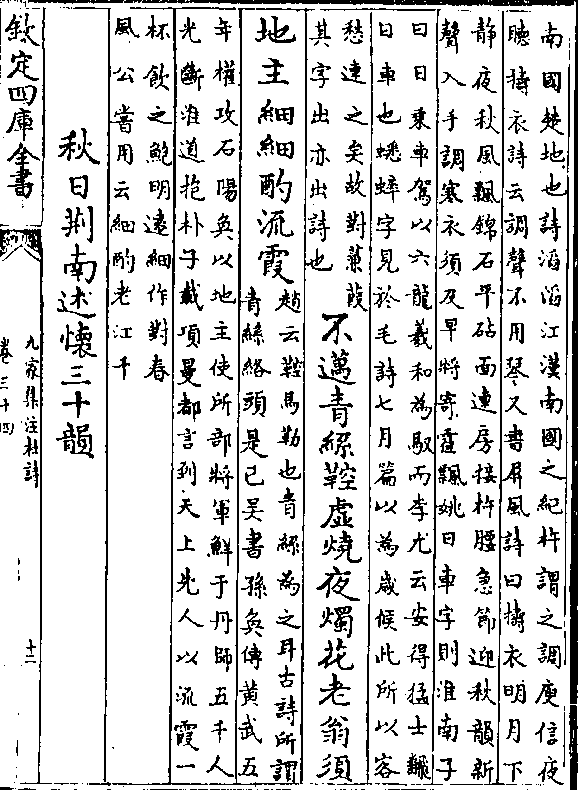 南國楚地也詩滔滔江漢南國之紀杵謂之調庾信夜
聽擣衣詩云調聲不用琴又書屏風詩曰擣衣明月下
靜夜秋風飄錦石平砧面連房接杵腰急節迎秋韻新
聲入手調寒衣須及早將寄霍飄姚日車字則淮南子
曰日乘車駕以六龍羲和為馭而李尤云安得猛士飜
日車也蟋蟀字見於毛詩七月篇以為歲候此所以客
愁連之矣故對蒹葭
其字出亦出詩也
不邁青絲鞚虛燒夜燭花老翁須
地主細細酌流霞
趙云鞚馬勒也青絲為之耳古詩所謂
青絲絡頭是已吳書孫奐傳黃武五
年權攻石陽奐以地主使所部將軍鮮于丹師五千人
光斷淮道抱朴子載項曼都言到天上先人以流霞一
杯飲之鮑明遠細作對春
風公嘗用云細酌老江千
秋日荆南述懷三十韻
欽定四庫全書
九家集注杜詩
卷三十四
十二